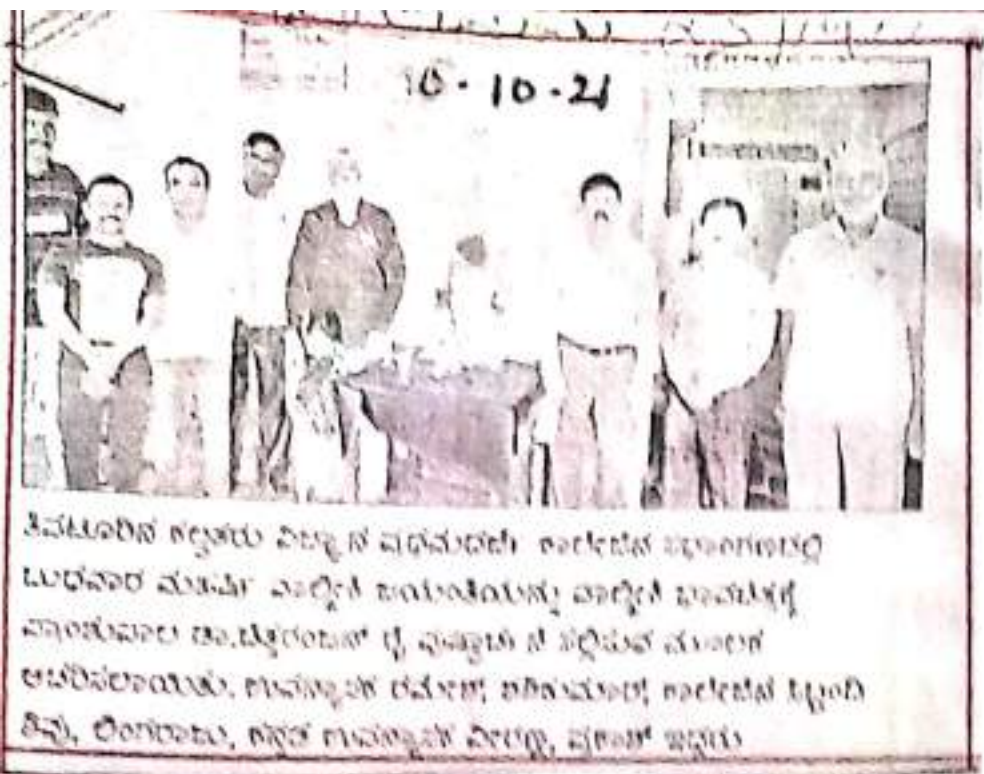 10-10-21
ತಿಪಟೂರಿನ ಕಲ್ಪತರು ವಿಜ್ಞಾನ ಪ್ರಥಮದರ್ಜೆ ಕಾಲೇಜಿನ ಸಭಾಂಗಣದಲ್ಲಿ
ಬುಧವಾರ ಮಹರ್ಷಿ ವಾಲ್ಮೀಕಿ ಜಯಂತಿಯನ್ನು ವಾಲ್ಮೀಕಿ ಭಾವಚಿತ್ರಕ್ಕೆ
ಪ್ರಾಂಶುಪಾಲ ಡಾ. ರೈ ಪುಷ್ಪಾರ್ಚನೆ ಸಲ್ಲಿಸುವ ಮೂಲಕ
ಆಚರಿಸಲಾಯಿತು. ಉಪನ್ಯಾಸಕ ರಮೇಶ್, ಶಶಿಕುಮಾರ್, ಕಾಲೇಜಿನ ಸಿಬ್ಬಂದಿ
ಶಿವು, ಲಿಂಗರಾಜು, ಕನ್ನಡ ಉಪನ್ಯಾಸಕ ವೀರಣ್ಣ, ಪ್ರಕಾಶ್ ಇದ್ದರು